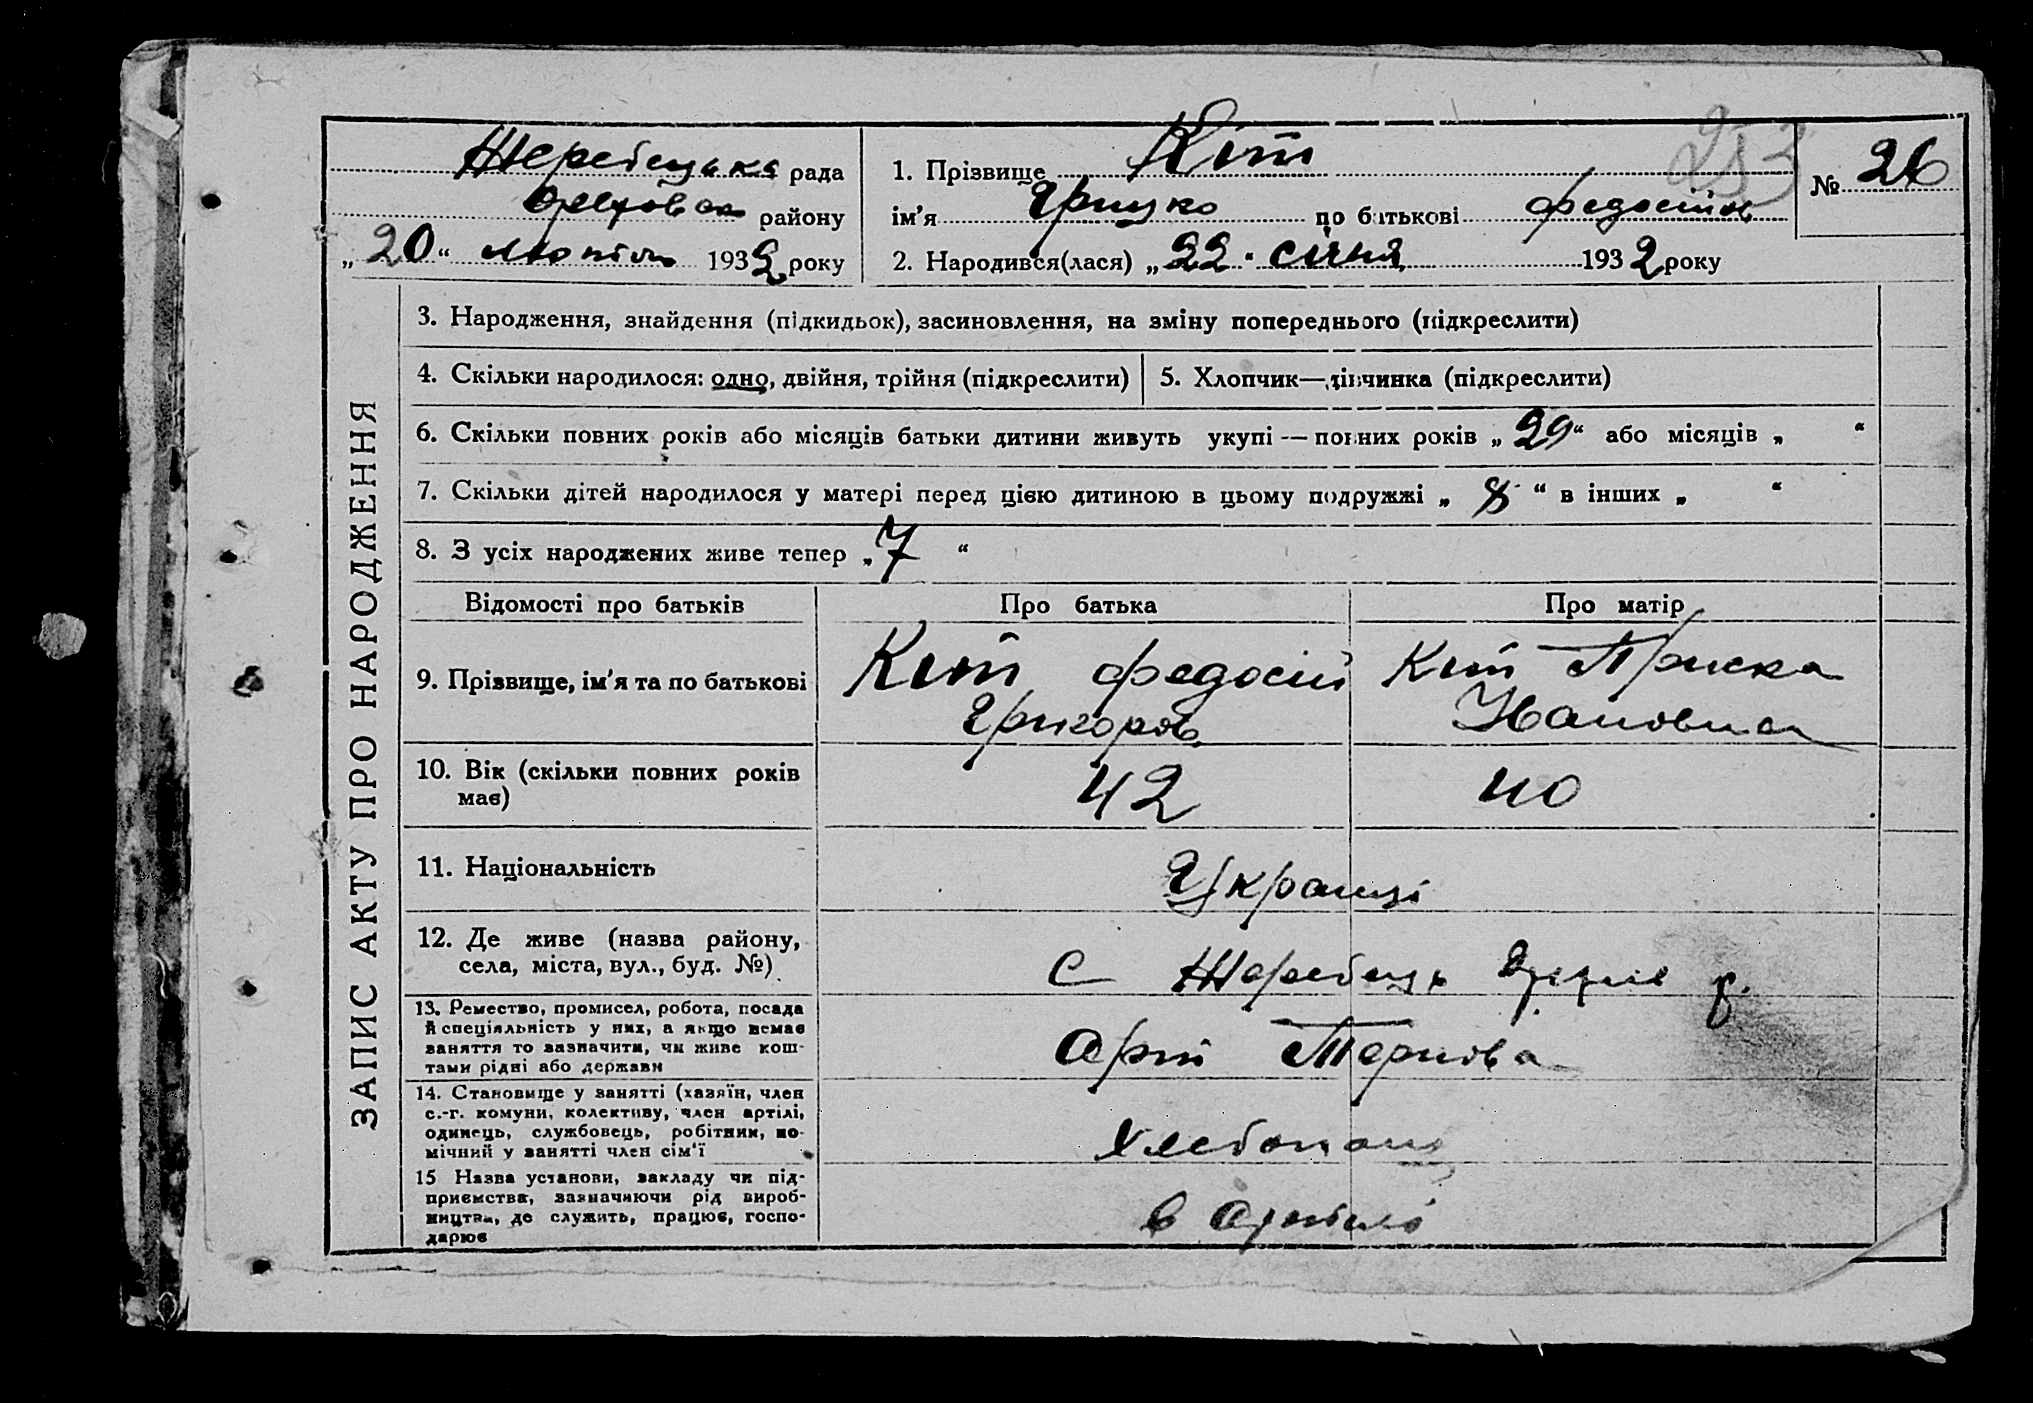 Жеребецька рада
Оріхівськ району
„20“ лютого 1932 року
1. Прізвище Кіт
ім’я Грицко по батькові Федосійов
2. Народився(лася) „22“ січня 1932 року
№ 26
253
ЗАПИС АКТУ ПРО НАРОДЖЕННЯ
3. Народження, знайдення (підкидьок), засиновлення, на зміну попереднього (підкреслити)
4. Скільки народилося: одно, двійня, трійня (підкреслити)
5. Хлопчик—дівчинка (підкреслити)
6. Скільки повних років або місяців батьки дитини живуть укупі — повних років „29“ або місяців „ “
7. Скільки дітей народилося у матері перед цією дитиною в цьому подружжі „8“ в інших „ “
8. З усіх народжених живе тепер „7 “
Відомості про батьків Про батька Про матір
9. Прізвище, ім’я та по батькові Кіт Федосій Кіт Приска
Григоров Ивановна
10. Вік (скільки повних років
має) 42 40
11. Національність Українці
12. Де живе (назва району,
села, міста, вул., буд. №) с Жеребець р.
13. Ремество, промисел, робота, посада
й спеціяльність у них, а якщо немає
заняття то зазначити, чи живе кош-
тами рідні або держави
14. Становище у занятті (хазяїн, член
с.-г. комуни, колективу, член артілі,
одинець, службовець, робітник, по-
мічний у занятті член сім’ї
15 Назва установи, закладу чи під-
приємства, зазначаючи рід вироб-
ництва, де служить, працює, госпо-
дарює
в артилі